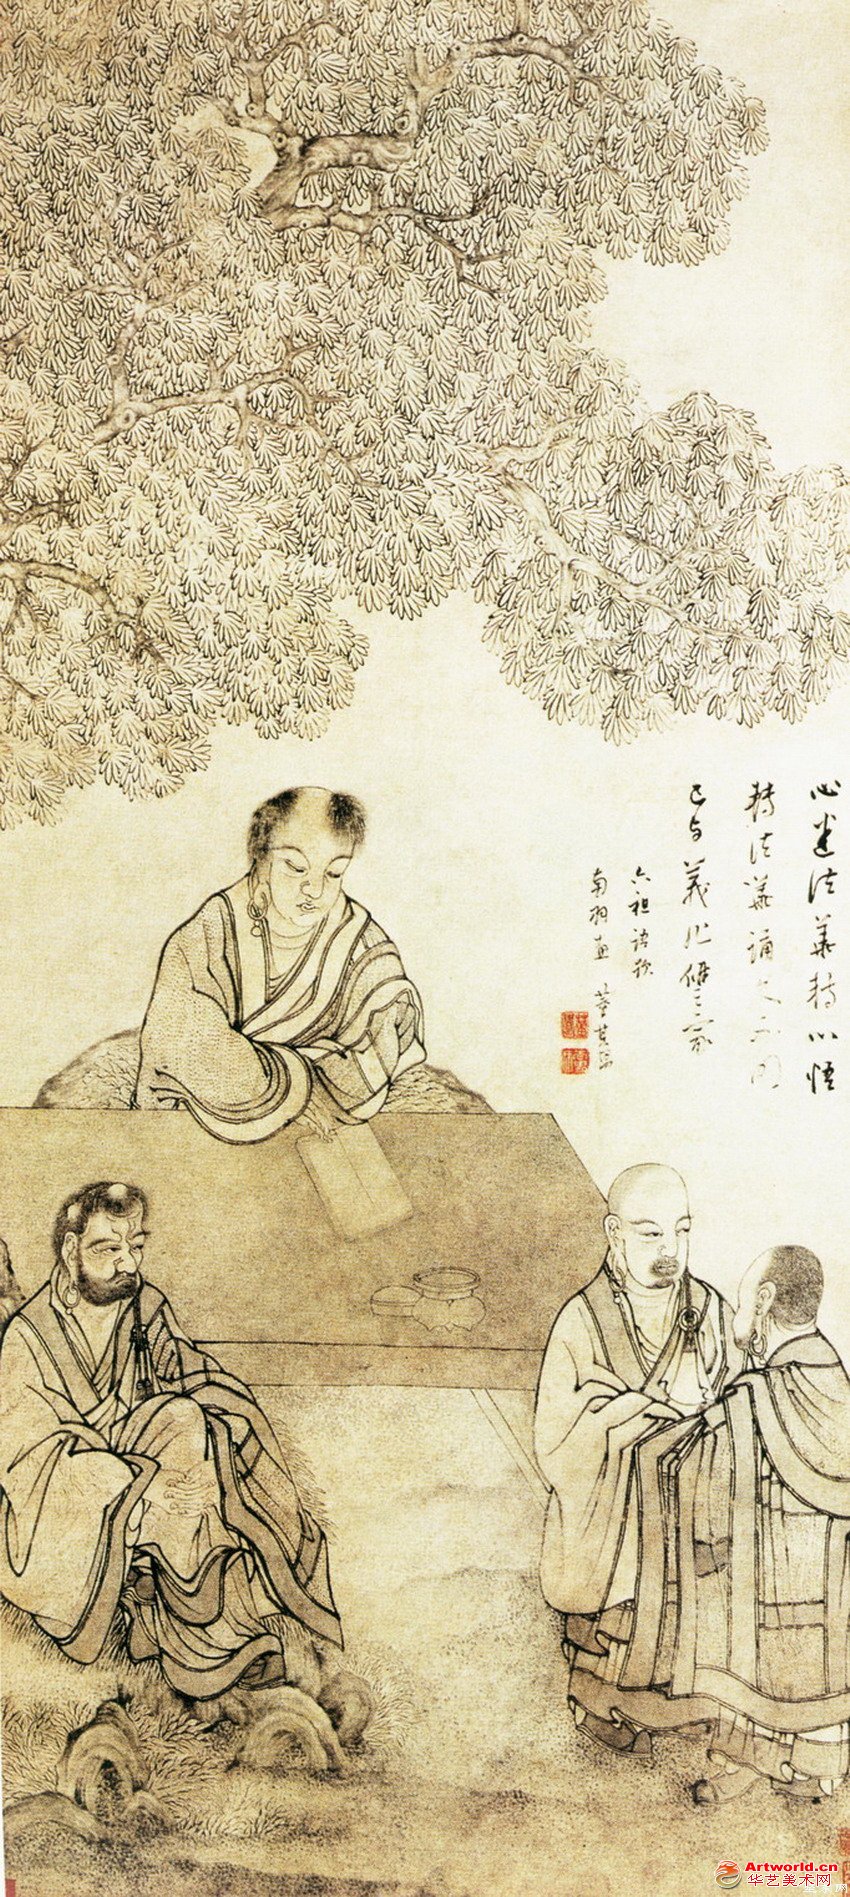 心迷法華轉心悟
轉法華誦久不明
己与義作讎家
六祖語
南羽畫 董其昌
Artworld.cn
华艺美术网